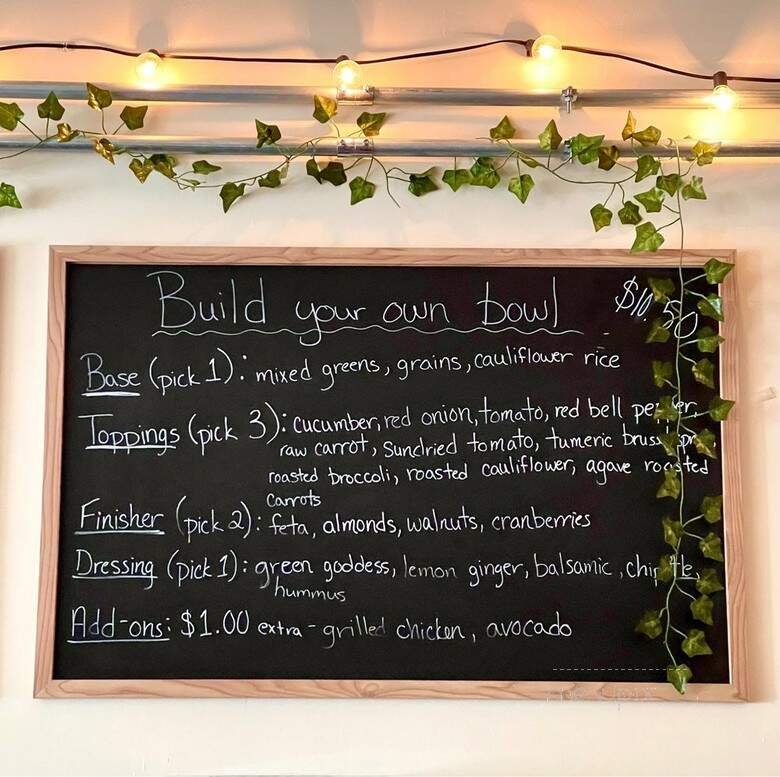 Build your own bowl $10.50
Base (pick 1): mixed greens, grains, cauliflower rice
Toppings (pick 3): cucumber, red onion, tomato, red bell pepper,
raw carrot, Sundried tomato, tumeric
roasted broccoli, roasted cauliflower, agave roasted
carrots
Finisher (pick 2): feta, almonds, walnuts, cranberries
Dressing (pick 1): green goddess, lemon ginger, balsamic, chipotle,
hummus
Add-ons: $1.00 extra - grilled chicken, avocado